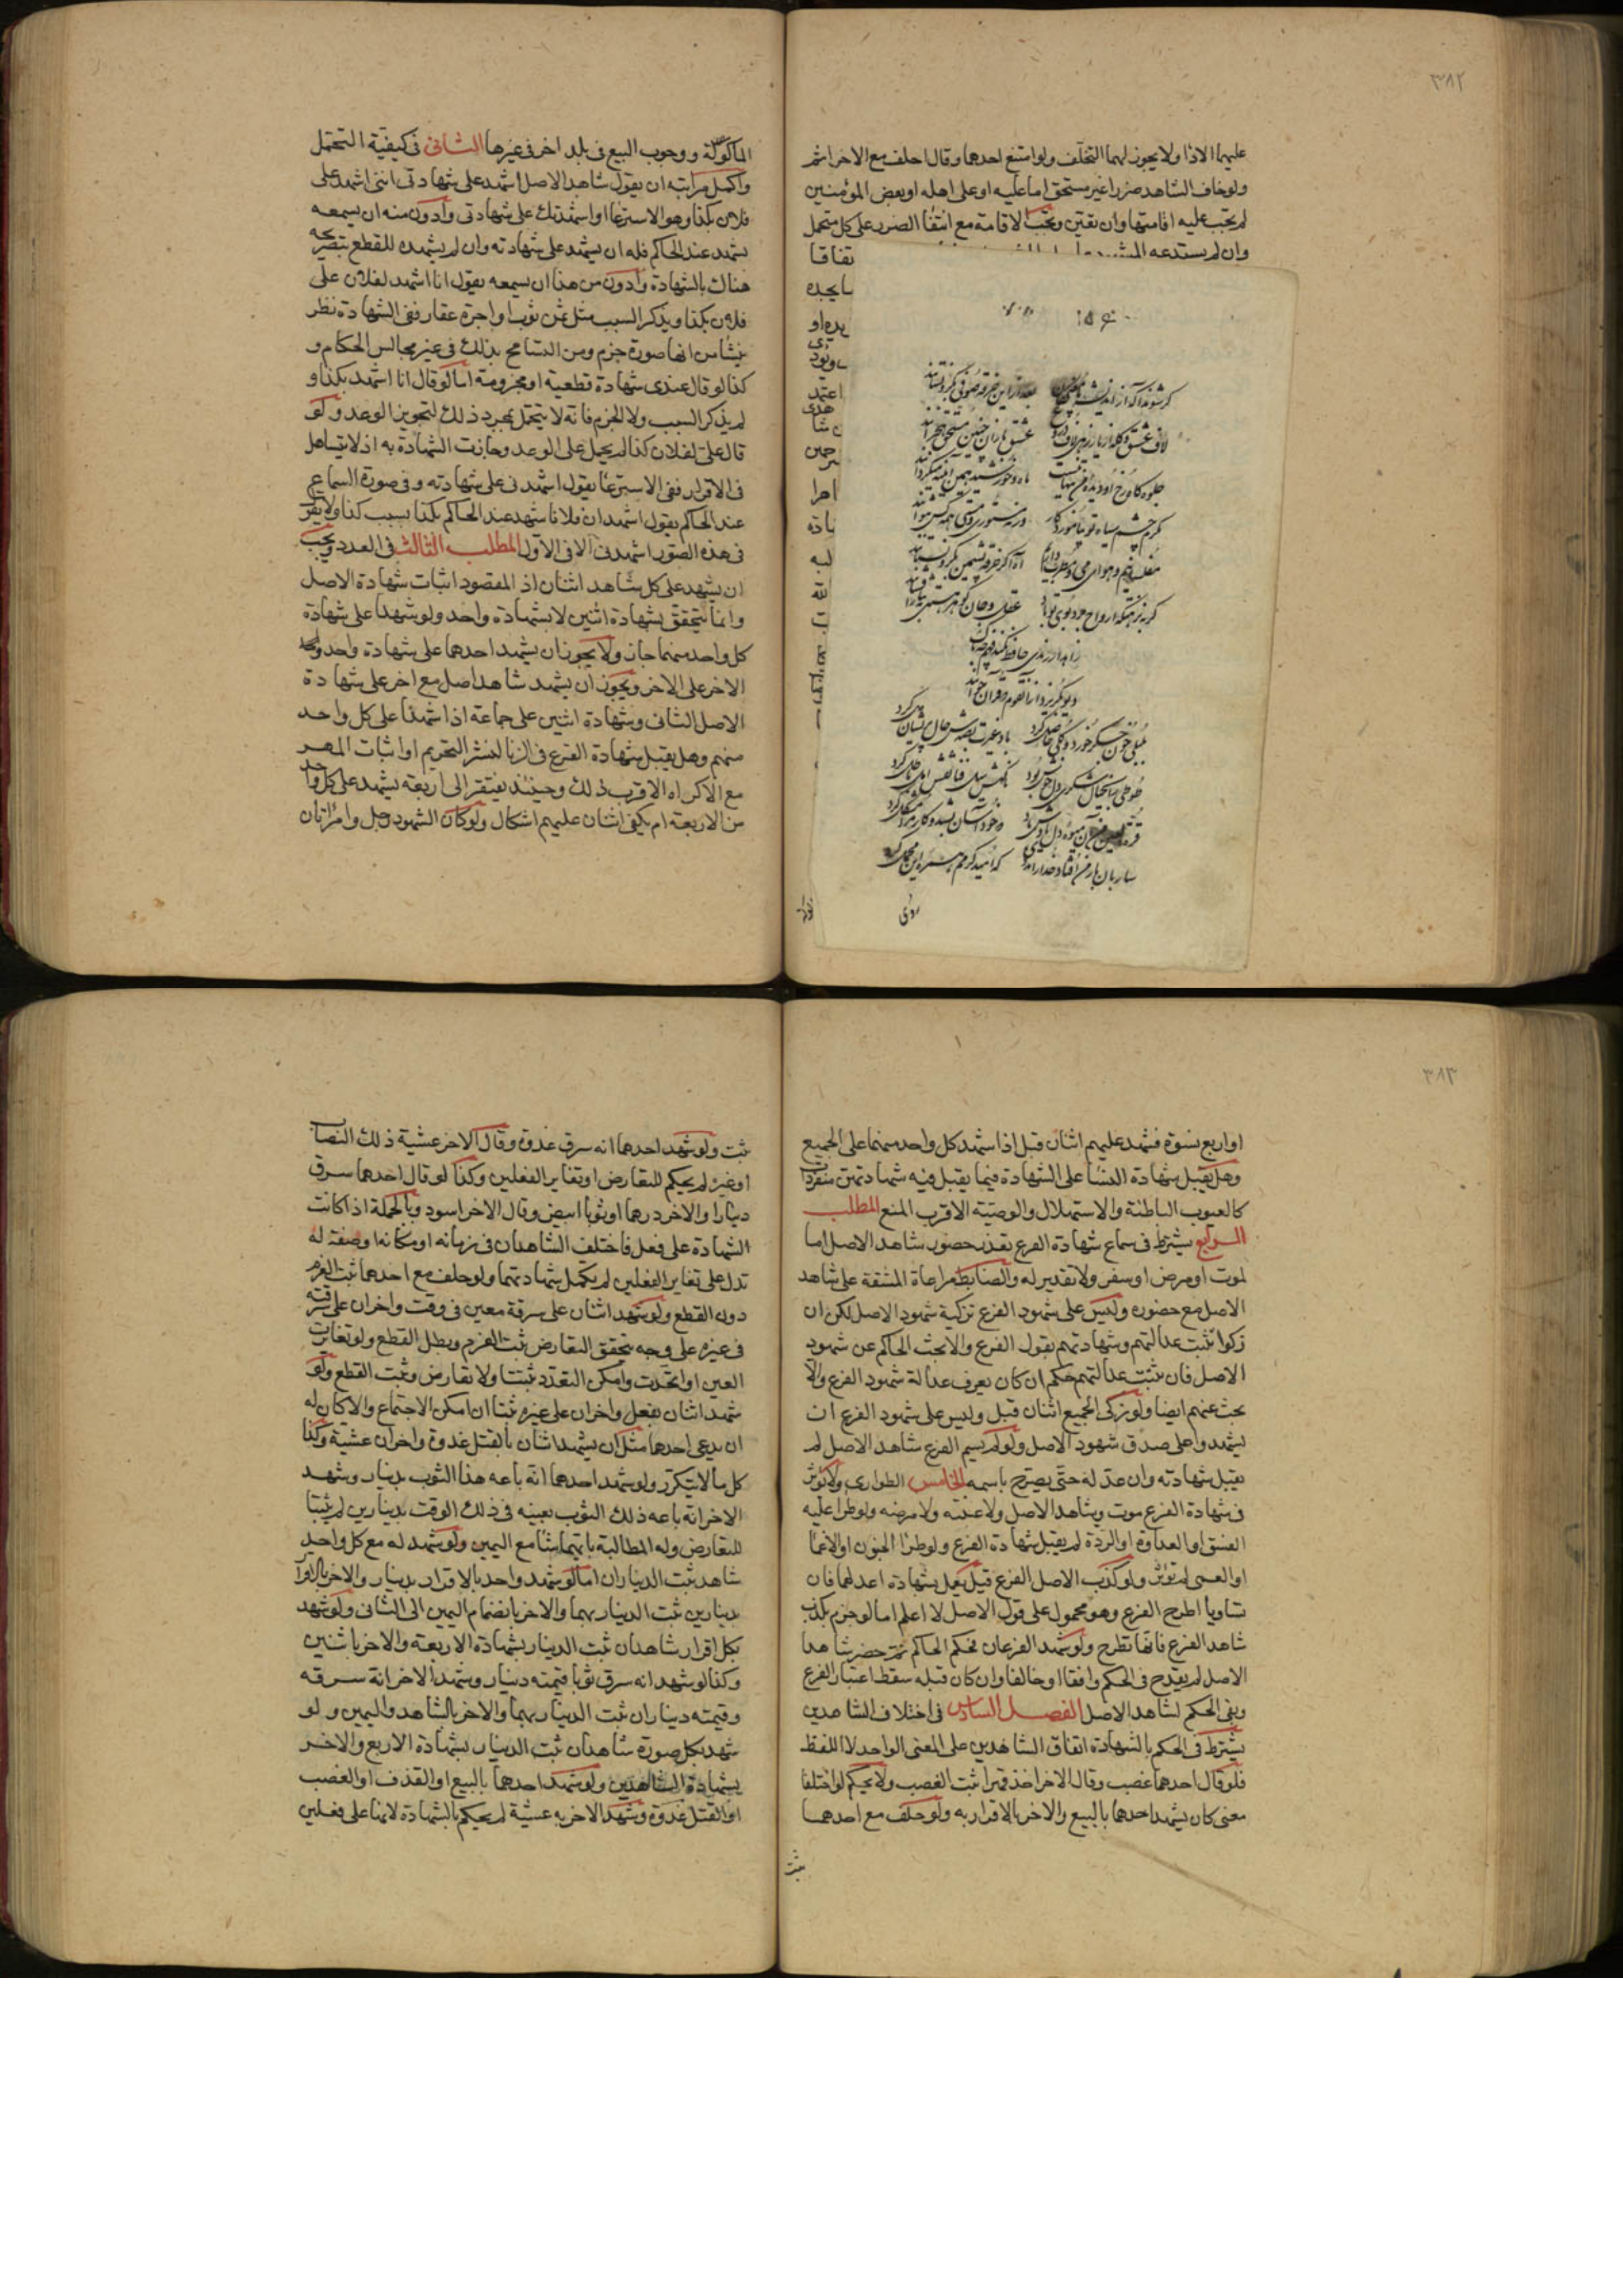 ٣٨٢
عليهما الاداء ولا يجوز لهما التخلف ولو امتنع احدهما وقال احلف مع الاخر اثم
ولو خاف الشاهد ضررا غير مستحق اما عليه او على اهله او بعض المؤمنين
لم يجب عليه اقامتها وان تعين ويجب الاقامة مع انتفا الضرر على كل متحمل
وان لم يستدعه
تفاقا
اعتمد
بلبلی خون جگر خورد و گلی حاصل کرد باد غیرت بصدش خال پریشان دل کرد
طوطی را بخیال شکری دل خوش بود ناگهش سیل فنا نقش امل باطل کرد
قرة العین من آن میوه دل یادش باد که خود آسان بشد و کار مرا مشکل کرد
ساربان بار من افتاد خدا را مددی که امید کرمم همره این محمل کرد
الماكولة ووجوب البيع فى بلد اخر فى غيرها الثانى فى كيفية التحمل
واكمل مراتبه ان يقول شاهد الاصل اشهد على شهادتى اننى اشهد على
فلان بكذا وهو الاسترعا او اشهدتك على شهادتى وادون منه ان يسمعه
يشهد عند الحاكم فله ان يشهد على شهادته وان لم يشهده للقطع بتصريحه
هناك بالشهادة وادون من هذا ان يسمعه يقول انا اشهد لفلان على
فلان بكذا ويذكر السبب مثل ثمن ثوب او اجرة عقار ففى الشهادة نظر
ينشا من انها صورة جزم ومن التسامح بذلك فى غير مجالس الحكام و
كذا لو قال عندى شهادة قطعية او مجزومة اما لو قال انا اشهد بكذا و
لم يذكر السبب ولا الجزم فانه لا يتحمل بمجرد ذلك لتجويز الوعد ولو
قال على لفلان كذا لم يحمل على الوعد وجازت الشهادة به اذ لا يتساهل
فى الاقرار ففى الاسترعا يقول اشهدنى على شهادته وفى صورة السماع
عند الحاكم يقول اشهد ان فلانا شهد عند الحاكم بكذا بسبب كذا ولا يقول
فى هذه الصور اشهدنى الا فى الاول المطلب الثالث فى العدد ويجب
ان يشهد على كل شاهد اثنان اذ المقصود اثبات شهادة الاصل
وانما يتحقق بشهادة اثنين لا بشهادة واحد ولو شهدا على شهادة
كل واحد منهما جاز ولا يجوز ان يشهد احدهما على شهادة واحد
الاخر على الاخر ويجوز ان يشهد شاهد اصل مع اخر على شهادة
الاصل الثانى وشهادة اثنين على جماعة اذا شهدا على كل واحد
منهم وهل يقبل شهادة الفرع فى الزنا لنشر التحريم او اثبات المهر
مع الاكراه الاقرب ذلك وحينئذ يفتقر الى اربعة يشهد على كل واحد
من الاربعة ام يكفى اثنان عليهم اشكال ولو كان الشهود رجل وامراتان
٣٨٣
او اربع نسوة فشهد عليهم اثنان قبل اذا شهد كل واحد منهما على الجميع
وهل يقبل شهادة النسا على الشهادة فيما يقبل فيه شهادتهن منفردات
كالعيوب الباطنة والاستهلال والوصية الاقرب المنع المطلب
الرابع يشترط فى سماع شهادة الفرع تعذر حضور شاهد الاصل اما
لموت او مرض او سفر ولا تقدير له والضابط مراعاة المشقة على شاهد
الاصل مع حضوره وليس على شهود الفرع تزكية شهود الاصل لكن ان
زكوا ثبت عدالتهم وشهادتهم بقول الفرع والا بحث الحاكم عن شهود
الاصل فان ثبت عدالتهم حكم ان كان يعرف عدالة شهود الفرع والا
بحث عنهم ايضا ولو زكى الجميع اثنان قبل وليس على شهود الفرع ان
يشهدوا على صدق شهود الاصل ولو لم يسم الفرع شاهد الاصل لم
يقبل شهادته وان عدله حتى يصرح باسمه الخامس الطوارى ولا يؤثر
فى شهادة الفرع موت شاهد الاصل ولا غيبته ولا مرضه ولو طرا عليه
الفسق او العداوة او الردة لم يقبل شهادة الفرع ولو طرا الجنون او الاغما
او العمى لم يؤثر ولو كذب الاصل الفرع قيل يعمل بشهادة اعدلهما فان
تساويا اطرح الفرع وهو محمول على قول الاصل لا اعلم اما لو جزم بكذب
شاهد الفرع فانها تطرح ولو شهد الفرعان فحكم الحاكم ثم حضر شاهدا
الاصل لم يقدح فى الحكم وافقا او خالفا وان كان قبله سقط اعتبار الفرع
وبقى الحكم لشاهد الاصل الفصل السادس فى اختلاف الشاهدين
يشترط فى الحكم بالشهادة اتفاق الشاهدين على المعنى الواحد لا اللفظ
فلو قال احدهما غصب وقال الاخر اخذ قهرا ثبت الغصب ولا يحكم لو اختلفا
معنى كان يشهد احدهما بالبيع والاخر بالاقرار به ولو حلف مع احدهما
ثبت
ثبت ولو شهد احدهما انه سرق غدوة وقال الاخر عشية ذلك النصاب
او غيره لم يحكم للتعارض او تغاير الفعلين وكذا لو قال احدهما سرق
دينارا والاخر درهما او ثوبا ابيض وقال الاخر اسود وبالجملة اذا كانت
الشهادة على فعل فاختلف الشاهدان فى زمانه او مكانه او صفة له
تدل على تغاير الفعلين لم يكمل شهادتهما ولو حلف مع احدهما ثبت الغرم
دون القطع ولو شهد اثنان على سرقة معين فى وقت واخران على سرقته
فى غيره على وجه يتحقق التعارض ثبت الغرم وبطل القطع ولو تغايرت
العين او اتحدت وامكن التعدد ثبتتا ولا تعارض وثبت القطع ولو
شهد اثنان بفعل واخران على غيره ثبتا ان امكن الاجتماع والا كان له
ان يدعى احدهما مثل ان يشهد اثنان بالقتل غدوة واخران عشية وكذا
كل ما لا يتكرر ولو شهد احدهما انه باعه هذا الثوب بدينار وشهد
الاخر انه باعه ذلك الثوب بعينه فى ذلك الوقت بدينارين لم يثبتا
للتعارض وله المطالبة بايهما شا مع اليمين ولو شهد له مع كل واحد
شاهد ثبت الديناران اما لو شهد واحد بالاقرار بدينار والاخر بالاقرار
بدينارين ثبت الدينار بهما والاخر بانضمام اليمين الى الثانى ولو شهد
بكل اقرار شاهدان ثبت الدينار بشهادة الاربعة والاخر باثنين
وكذا لو شهد انه سرق ثوبا قيمته دينار وشهد الاخر انه سرقه
وقيمته ديناران ثبت الدينار بهما والاخر بالشاهد واليمين ولو
شهد بكل صورة شاهدان ثبت الدينار بشهادة الاربع والاخر
بشهادة الشاهدين ولو شهد احدهما بالبيع او القذف او الغصب
او القتل غدوة وشهد الاخر به عشية لم يحكم بالشهادة لانها على فعلين